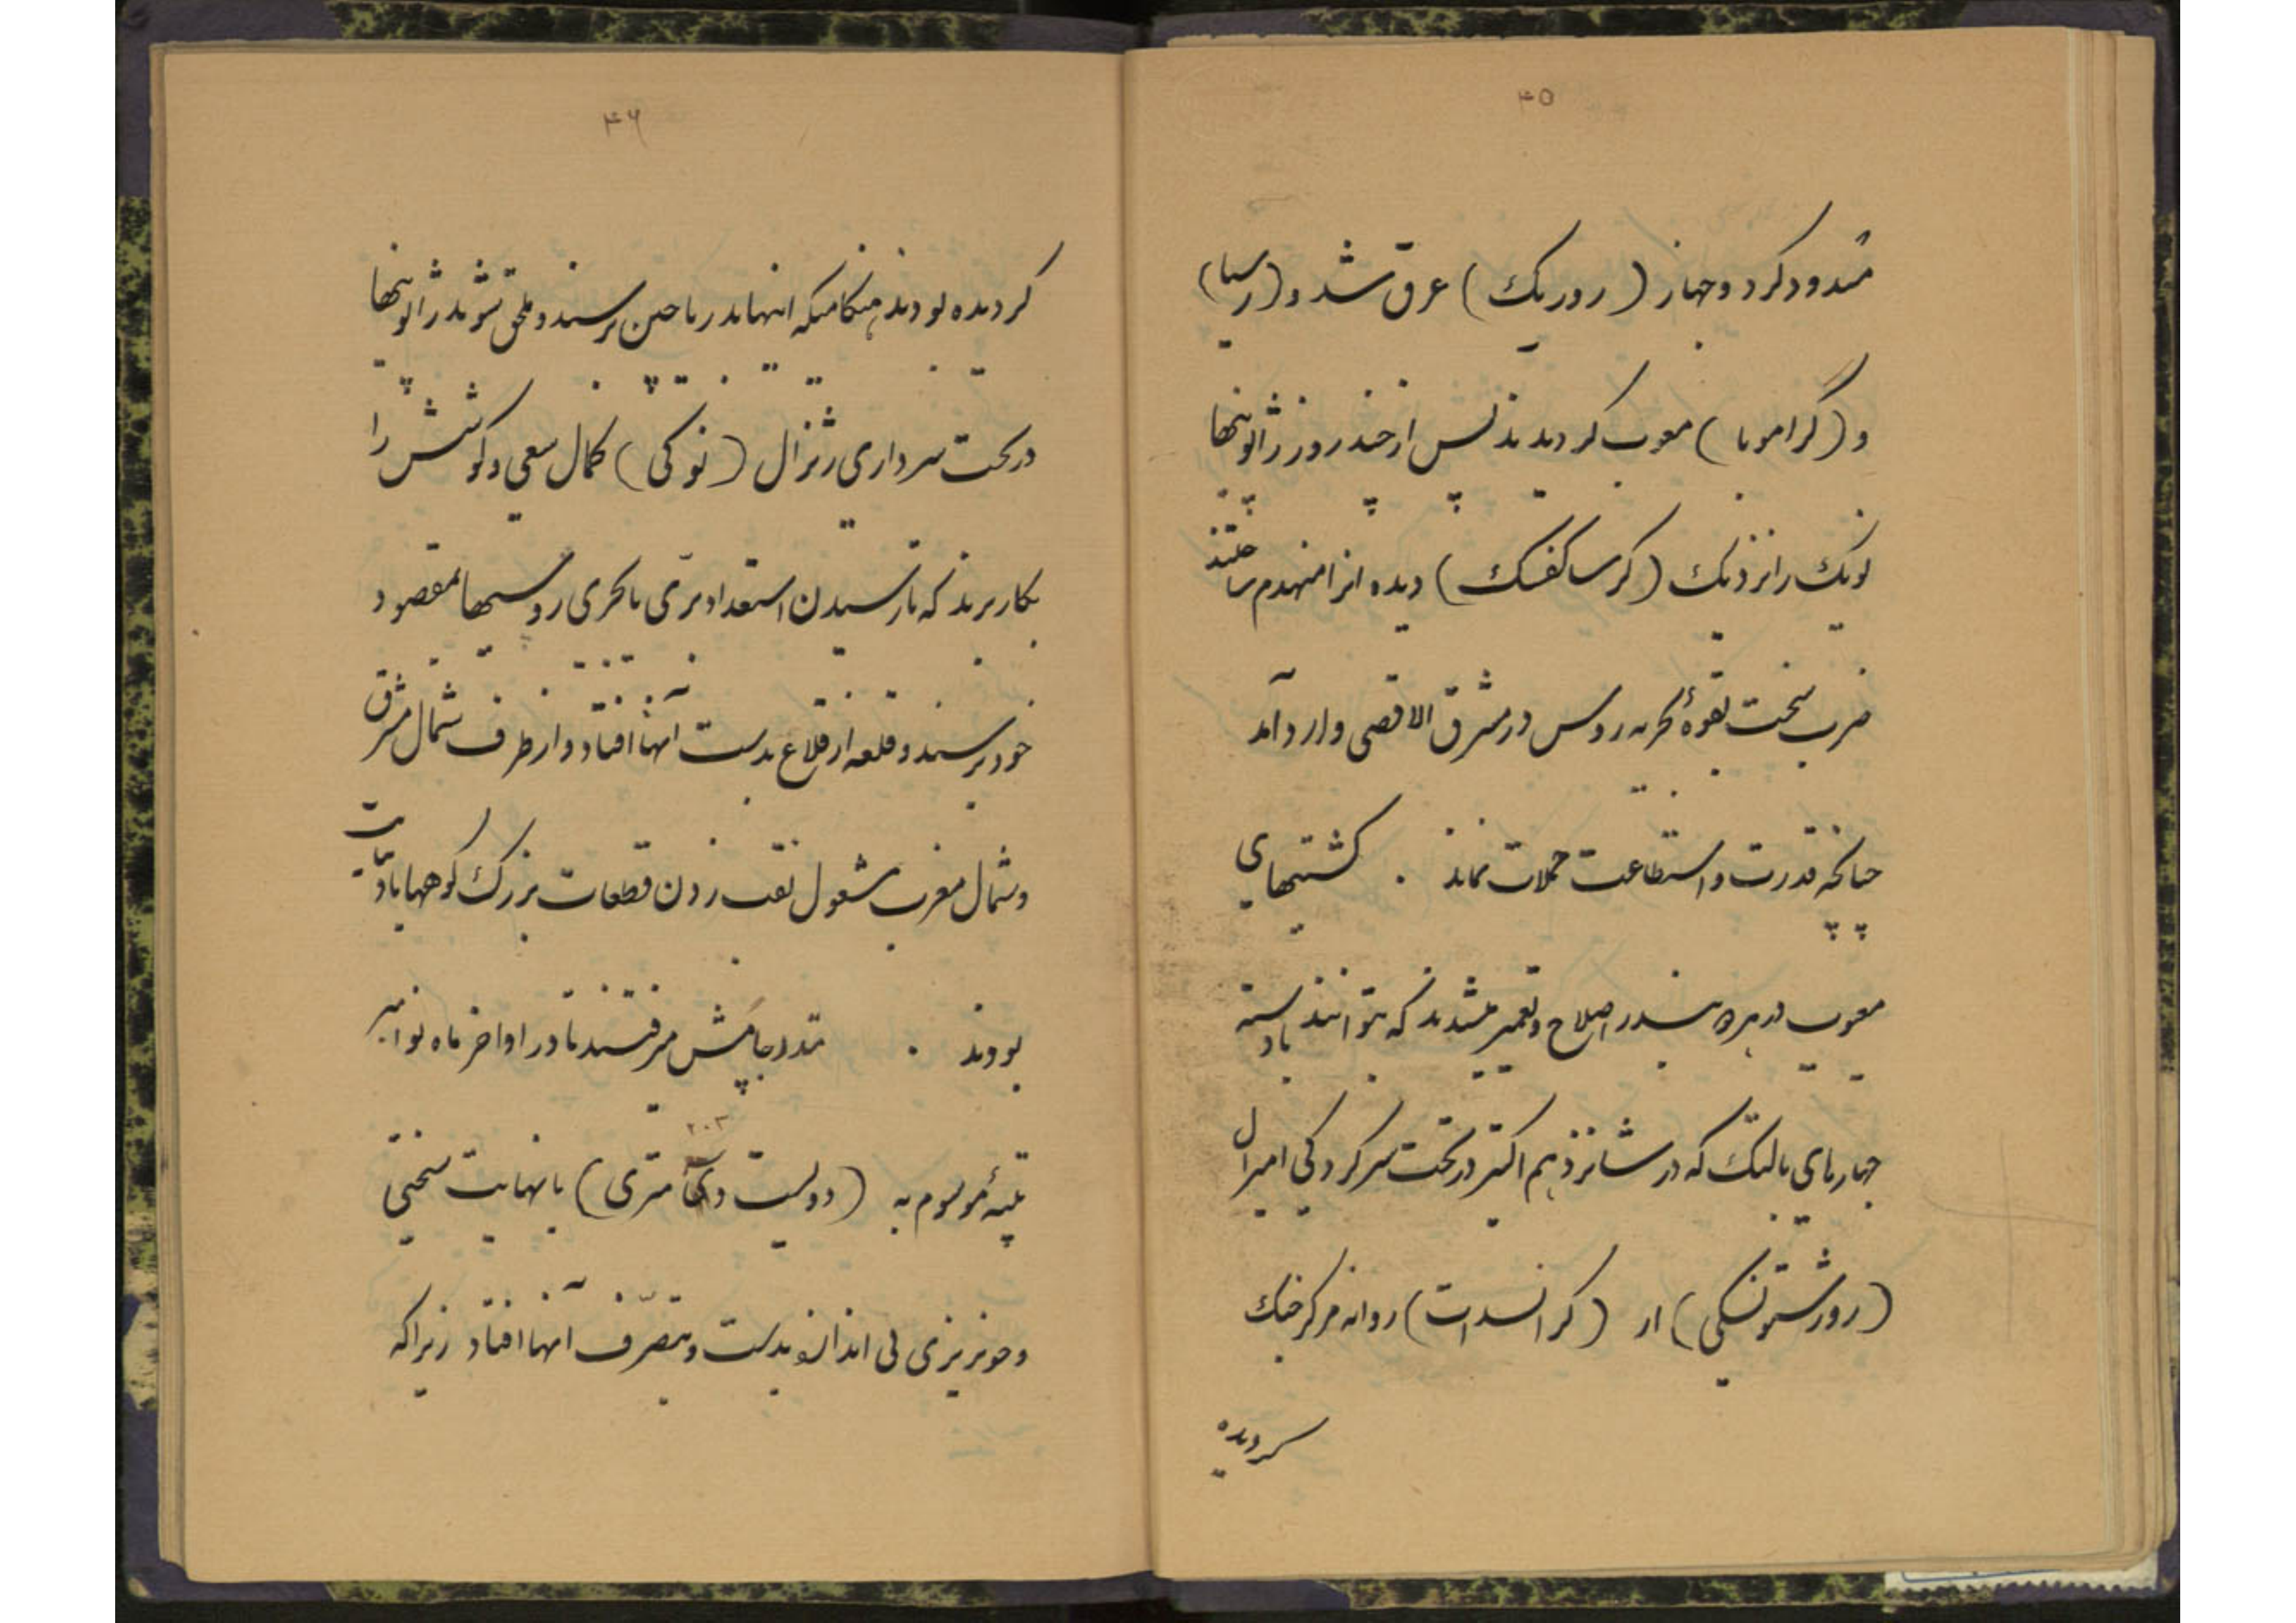 ۴۵
مسدود کرد و جهاز (روریک) غرق شد و (رسیا)
و (گراموبا) معیوب گردیدند پس از چند روز ژاپونیها
نویک را نزدیک (کرساکفسک) دیده انرا منهدم ساختند
ضرب سخت بقوهٔ بحریه روس در مشرق الاقصی وارد آمد
چنانچه قدرت و استطاعت حملات نماند . کشتیهای
معیوب در هر دو بندر اصلاح و تعمیر میشدند که بتوانند با دسته
جهازهای بالتیک که در شانزدهم اکتبر در تحت سرکردگی امیرال
(روزشتونسکی) از (کرانسدات) روانه مرکز جنک
گردیده
۴۶
گردیده بودند هنگامیکه اینها بدریا چین برسند و ملحق شوند ژاپونیها
در تحت سرداری ژنرال (نوکی) کمال سعی و کوشش را
بکار بردند که تا رسیدن استعداد برّی یا بحری روسیها بمقصود
خود برسند و قلعه از قلاع بدست آنها افتاد و از طرف شمال شرق
و شمال مغرب مشغول نقب زدن قطعات بزرک کوهها با دینامیت
بودند . متدرجا پیش میرفتند تا در اواخر ماه نوامبر
۲۰۳
تپهٔ موسوم به (دویست و سه متری) با نهایت سختی
و خونریزی بی اندازه بدست و بتصرّف آنها افتاد زیرا که